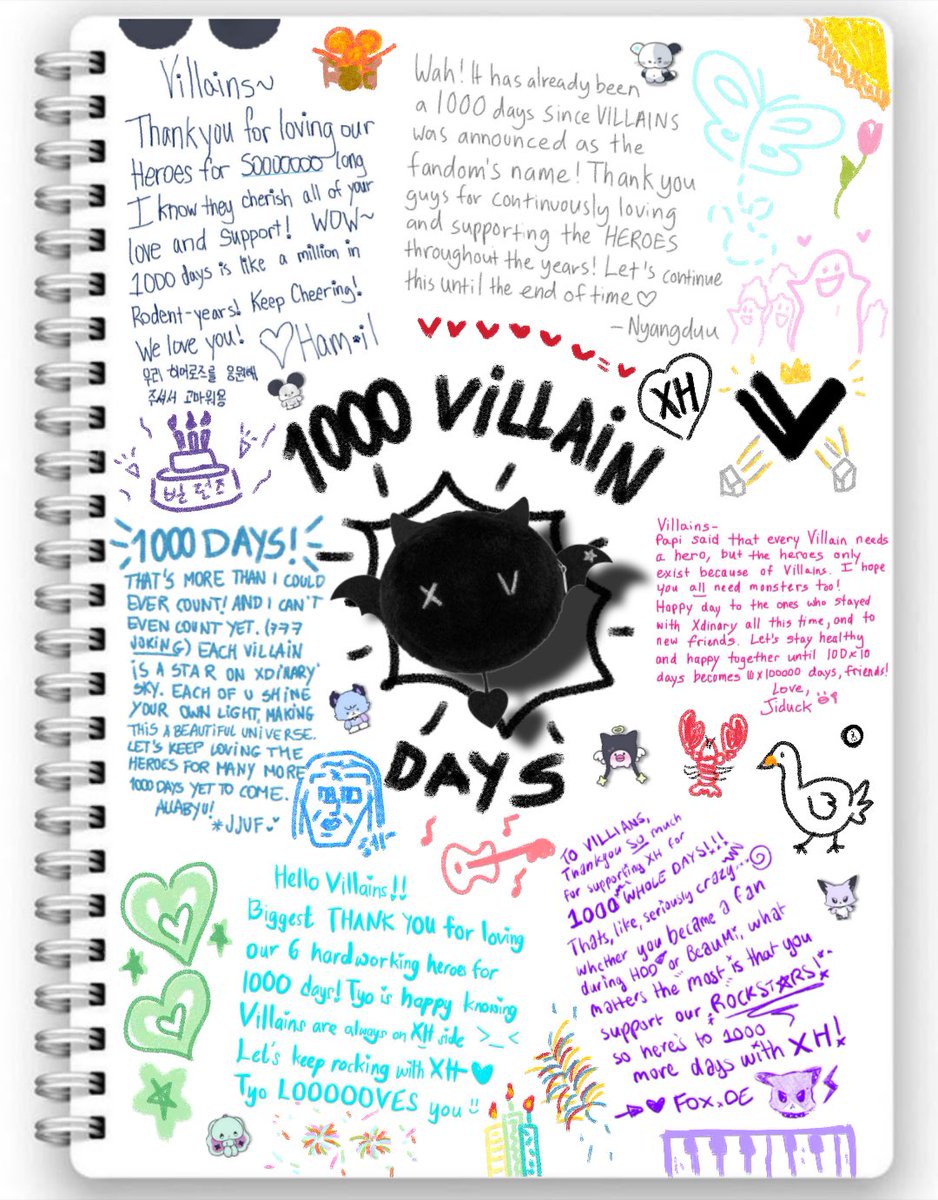 Villains~
Thank you for loving our
Heroes for SOOOOOOO long
I know they cherish all of your
love and support! WOW~
1000 days is like a million in
Rodent-years! Keep Cheering!
We love you! ♡Ham•il
우리 히어로즈를 응원해
주셔서 고마워용
Wah! It has already been
a 1000 days since VILLAINS
was announced as the
fandom's name! Thank you
guys for continuously loving
and supporting the HEROES
throughout the years! Let's continue
this until the end of time ♡
– Nyangduu
빌런즈
1000 VILLAIN
XH
V
X V
DAYS
1000 DAYS!
THAT'S MORE THAN I COULD
EVER COUNT! AND I CAN'T
EVEN COUNT YET. (ㅋㅋㅋ
JOKING) EACH VILLAIN
IS A STAR ON XDINARY
SKY. EACH OF U SHINE
YOUR OWN LIGHT, MAKING
THIS A BEAUTIFUL UNIVERSE.
LET'S KEEP LOVING THE
HEROES FOR MANY MORE
1000 DAYS YET TO COME.
ALLABYU!
*JJUF
Villains–
Papi said that every Villain needs
a hero, but the heroes only
exist because of Villains. I hope
you all need monsters too!
Happy day to the ones who stayed
with Xdinary all this time, and to
new friends. Let's stay healthy
and happy together until 100x10
days becomes 10x100000 days, friends!
Love,
Jiduck
Hello Villains!!
Biggest THANK YOU for loving
our 6 hardworking heroes for
1000 days! Tyo is happy knowing
Villains are always on XH side >_<
Let's keep rocking with XH ♥
Tyo LOOOOOVES you
TO VILLIANS,
Thankyou SO much
for supporting XH for
1000 WHOLE DAYS!!!
Thats, like, seriously crazy...
whether you became a fan
during HOD or BEAUMi, what
matters the most is that you
support our ROCKST☆RS!
so here's to 1000
more days with XH!
♥ FOX.DE